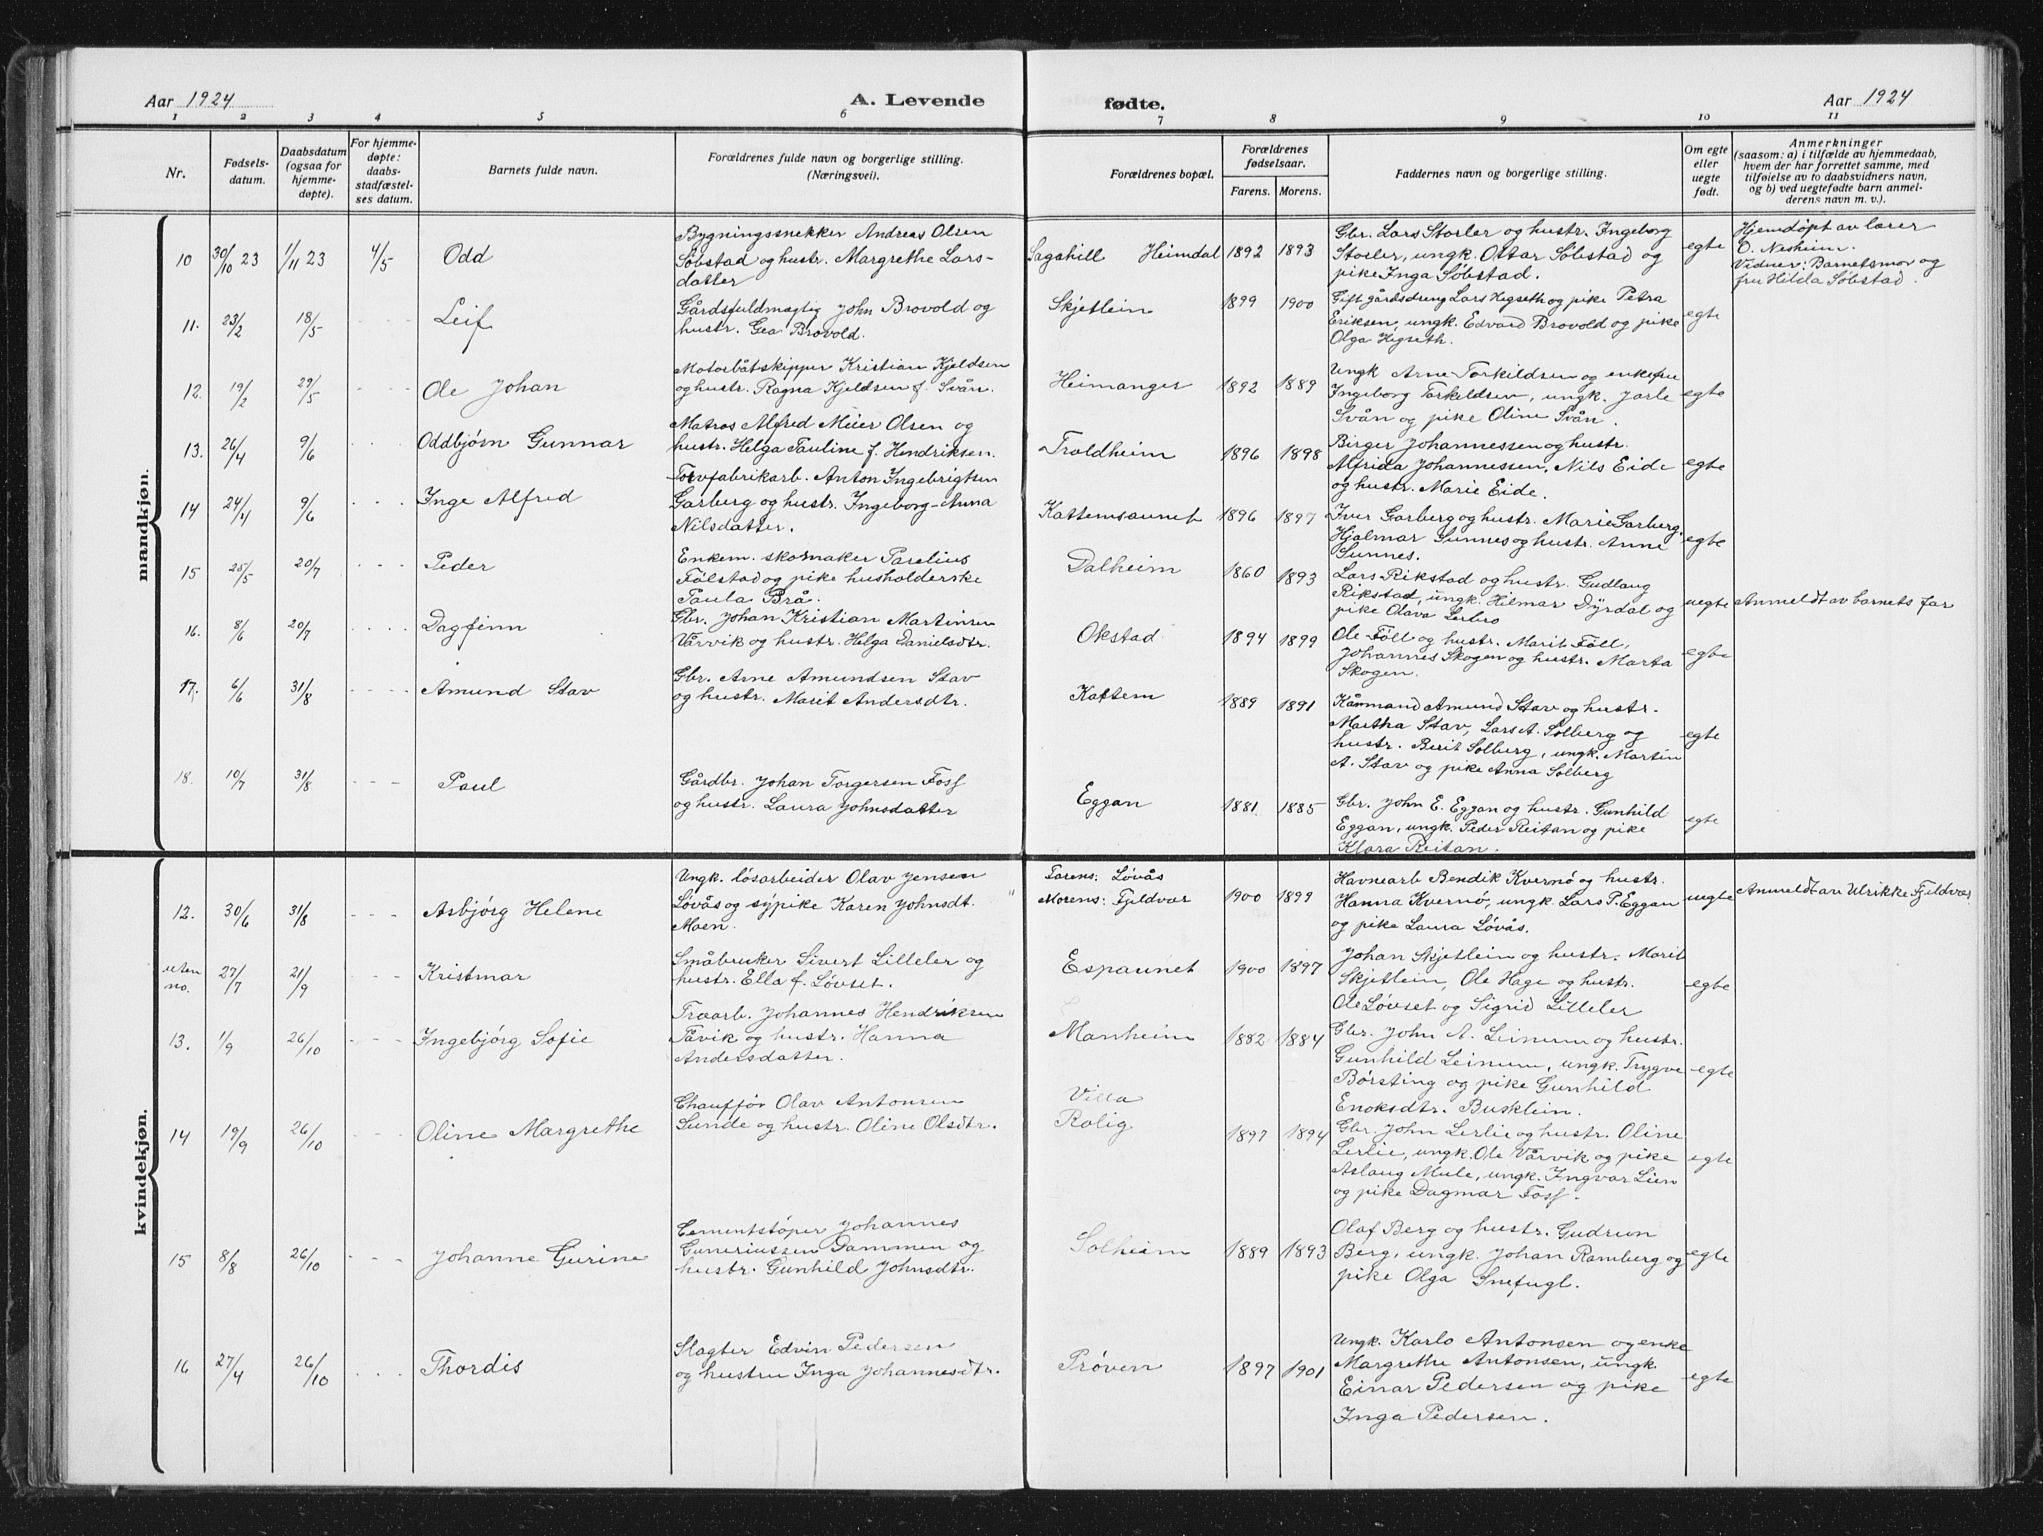 Aar 1924
A. Levende
fødte.
Aar 1924
1 2 3 4 5 6 7 8 9 10 11
Nr.
Fødsels-
datum.
Daabsdatum
(ogsaa for
hjemme-
døpte).
For hjemme-
døpte:
daabs-
stadfæstel-
ses datum.
Barnets fulde navn.
Forældrenes fulde navn og borgerlige stilling.
(Næringsvei).
Forældrenes bopæl.
Forældrenes
fødselsaar.
Farens. Morens.
Faddernes navn og borgerlige stilling.
Om egte
eller
uegte
født.
Anmerkninger
(saasom: a) i tilfælde av hjemmedaab,
hvem der har forrettet samme, med
tilføielse av to daabsvidners navn,
og b) ved uegtefødte barn anmel-
derens navn m. v.).
mandkjøn.
10 30/10 23 1/11 23 4/5 Odd
Bygningssnekker Andreas Olsen
Søbstad og hustr. Margrethe Lars-
datter
Sagahill Heimdal 1892 1893
Gbr. Lars Storler og hustr. Ingeborg
Storler, ungk. Ottar Søbstad og
pike Inga Søbstad.
egte
Hjemdøpt av lærer
O. Nesheim.
Vidner: Barnetsmor og
fru Hilda Søbstad.
11. 23/2 18/5 - - - Leif
Gårdsfuldmægtig John Brovold og
hustr. Gea Brovold.
Skjetlein 1899 1900
Gift gårdsdreng Lars Hegseth og pike Petra
Eriksen, ungk. Edvard Brovold og pike
Olga Hegseth.
egte
12. 19/2 29/5 - - - Ole Johan
Motorbåtskipper Kristian Kjeldsen
og hustr. Ragna Kjeldsen f. Svån.
Heimanger 1892 1889
Ungk Arne Torkildsen og enkefru
Ingeborg Torkildsen, ungk. Jarle
Svån og pike Oline Svån.
egte
13. 26/4 9/6 - - - Oddbjørn Gunnar
Matros Alfred Meier Olsen og
hustr. Helga Pauline f. Hendriksen.
Troldheim 1896 1898
Birger Johannessen og hustr.
Alfrida Johannessen, Nils Eide
og hustr. Marie Eide.
egte
14 24/4 9/6 - - - Inge Alfred
Torvfabrikarb. Anton Ingebrigtsen
Garberg og hustr. Ingeborg-Anna
Nilsdatter.
Kattemsaunet 1896 1897
Iver Garberg og hustr. Marie Garberg.
Hjalmar Sunnes og hustr. Anne
Sunnes.
egte
15 25/5 20/7 - - - Peder
Enkem. skomaker Parelius
Følstad og pike husholderske
Paula Brå.
Dalheim 1860 1893
Lars Rikstad og hustr. Gudlaug
Rikstad, ungk. Hilmar Dyrdal og
pike Olava Lerbro
uegte
Anmeldt av barnets far
16. 8/6 20/7 - - - - Dagfinn
Gbr. Johan Kristian Martinsen
Vårvik og hustr. Helga Danielsdtr.
Okstad 1894 1899
Ole Føll og hustr. Marit Føll,
Johannes Skogen og hustr. Marta
Skogen.
egte
17. 6/6 31/8 - - - - Amund Stav
Gbr. Arne Amundsen Stav
og hustr. Marit Andersdtr.
Kattem 1889 1891
Kårmand Amund Stav og hustr.
Martha Stav, Lars A. Solberg og
hustr. Berit Solberg, ungk. Martin
A. Stav og pike Anna Solberg
egte
18. 10/7 31/8 - - - Paul
Gårdbr. Johan Torgersen Foss
og hustr. Laura Johnsdatter
Eggan 1881 1885
Gbr. John E. Eggan og hustr. Gunhild
Eggan, ungk. Peder Reitan og pike
Klara Reitan.
egte
kvindekjøn.
12. 30/6 31/8 - - - Asbjørg Helene
Ungk. løsarbeider Olav Jensen
Løvås og sypike Karen Johnsdt.
Moen.
Farens: Løvås
Morens: Fjeldvær 1900 1899
Havnearb Bendik Kvernø og hustr.
Hanna Kvernø, ungk. Lars P. Eggan
og pike Laura Løvås.
uegte
Anmeldt av Ulrikke Fjeldvær
uten
no. 27/7 21/9 - - - Kristmar
Småbruker Sivert Lilleler og
hustr. Ella f. Løvset.
Espaunet 1900 1897
Johan Skjetlein og hustr. Marit
Skjetlein, Ole Hage og hustr.
Ole Løvset og Sigrid Lilleler
egte
13. 1/9 26/10 - - - Ingebjørg Sofie
Traarb. Johannes Hendriksen
Tåvik og hustr. Hanna
Andersdatter.
Manheim 1882 1884
Gbr. John A. Leinum og hustr.
Gunhild Leinum, ungk. Trygve
Børsting og pike Gunhild
Enoksdtr. Busklein.
egte
14 19/9 26/10 - - - Oline Margrethe
Chauffør Olav Antonsen
Sunde og hustr. Oline Olsdtr.
Villa
Rolig 1897 1894
Gbr. John Lerlie og hustr. Oline
Lerlie, ungk. Ole Vårvik og pike
Aslaug Mule, ungk. Ingvar Lien
og pike Dagmar Foss.
egte
15 8/8 26/10 - - - Johanne Gurine
Cementstøper Johannes
Guneriussen Dammen og
hustr. Gunhild Johnsdtr.
Solheim 1889 1893
Olaf Berg og hustr. Gudrun
Berg, ungk. Johan Ramberg og
pike Olga Snefugl.
egte
16 27/4 26/10 - - - Thordis
Slagter Edvin Pedersen
og hustru Inga Johannesdtr.
Prøven 1897 1901
Ungk. Karlo Antonsen og enke
Margrethe Antonsen, ungk
Einar Pedersen og pike
Inga Pedersen.
egte